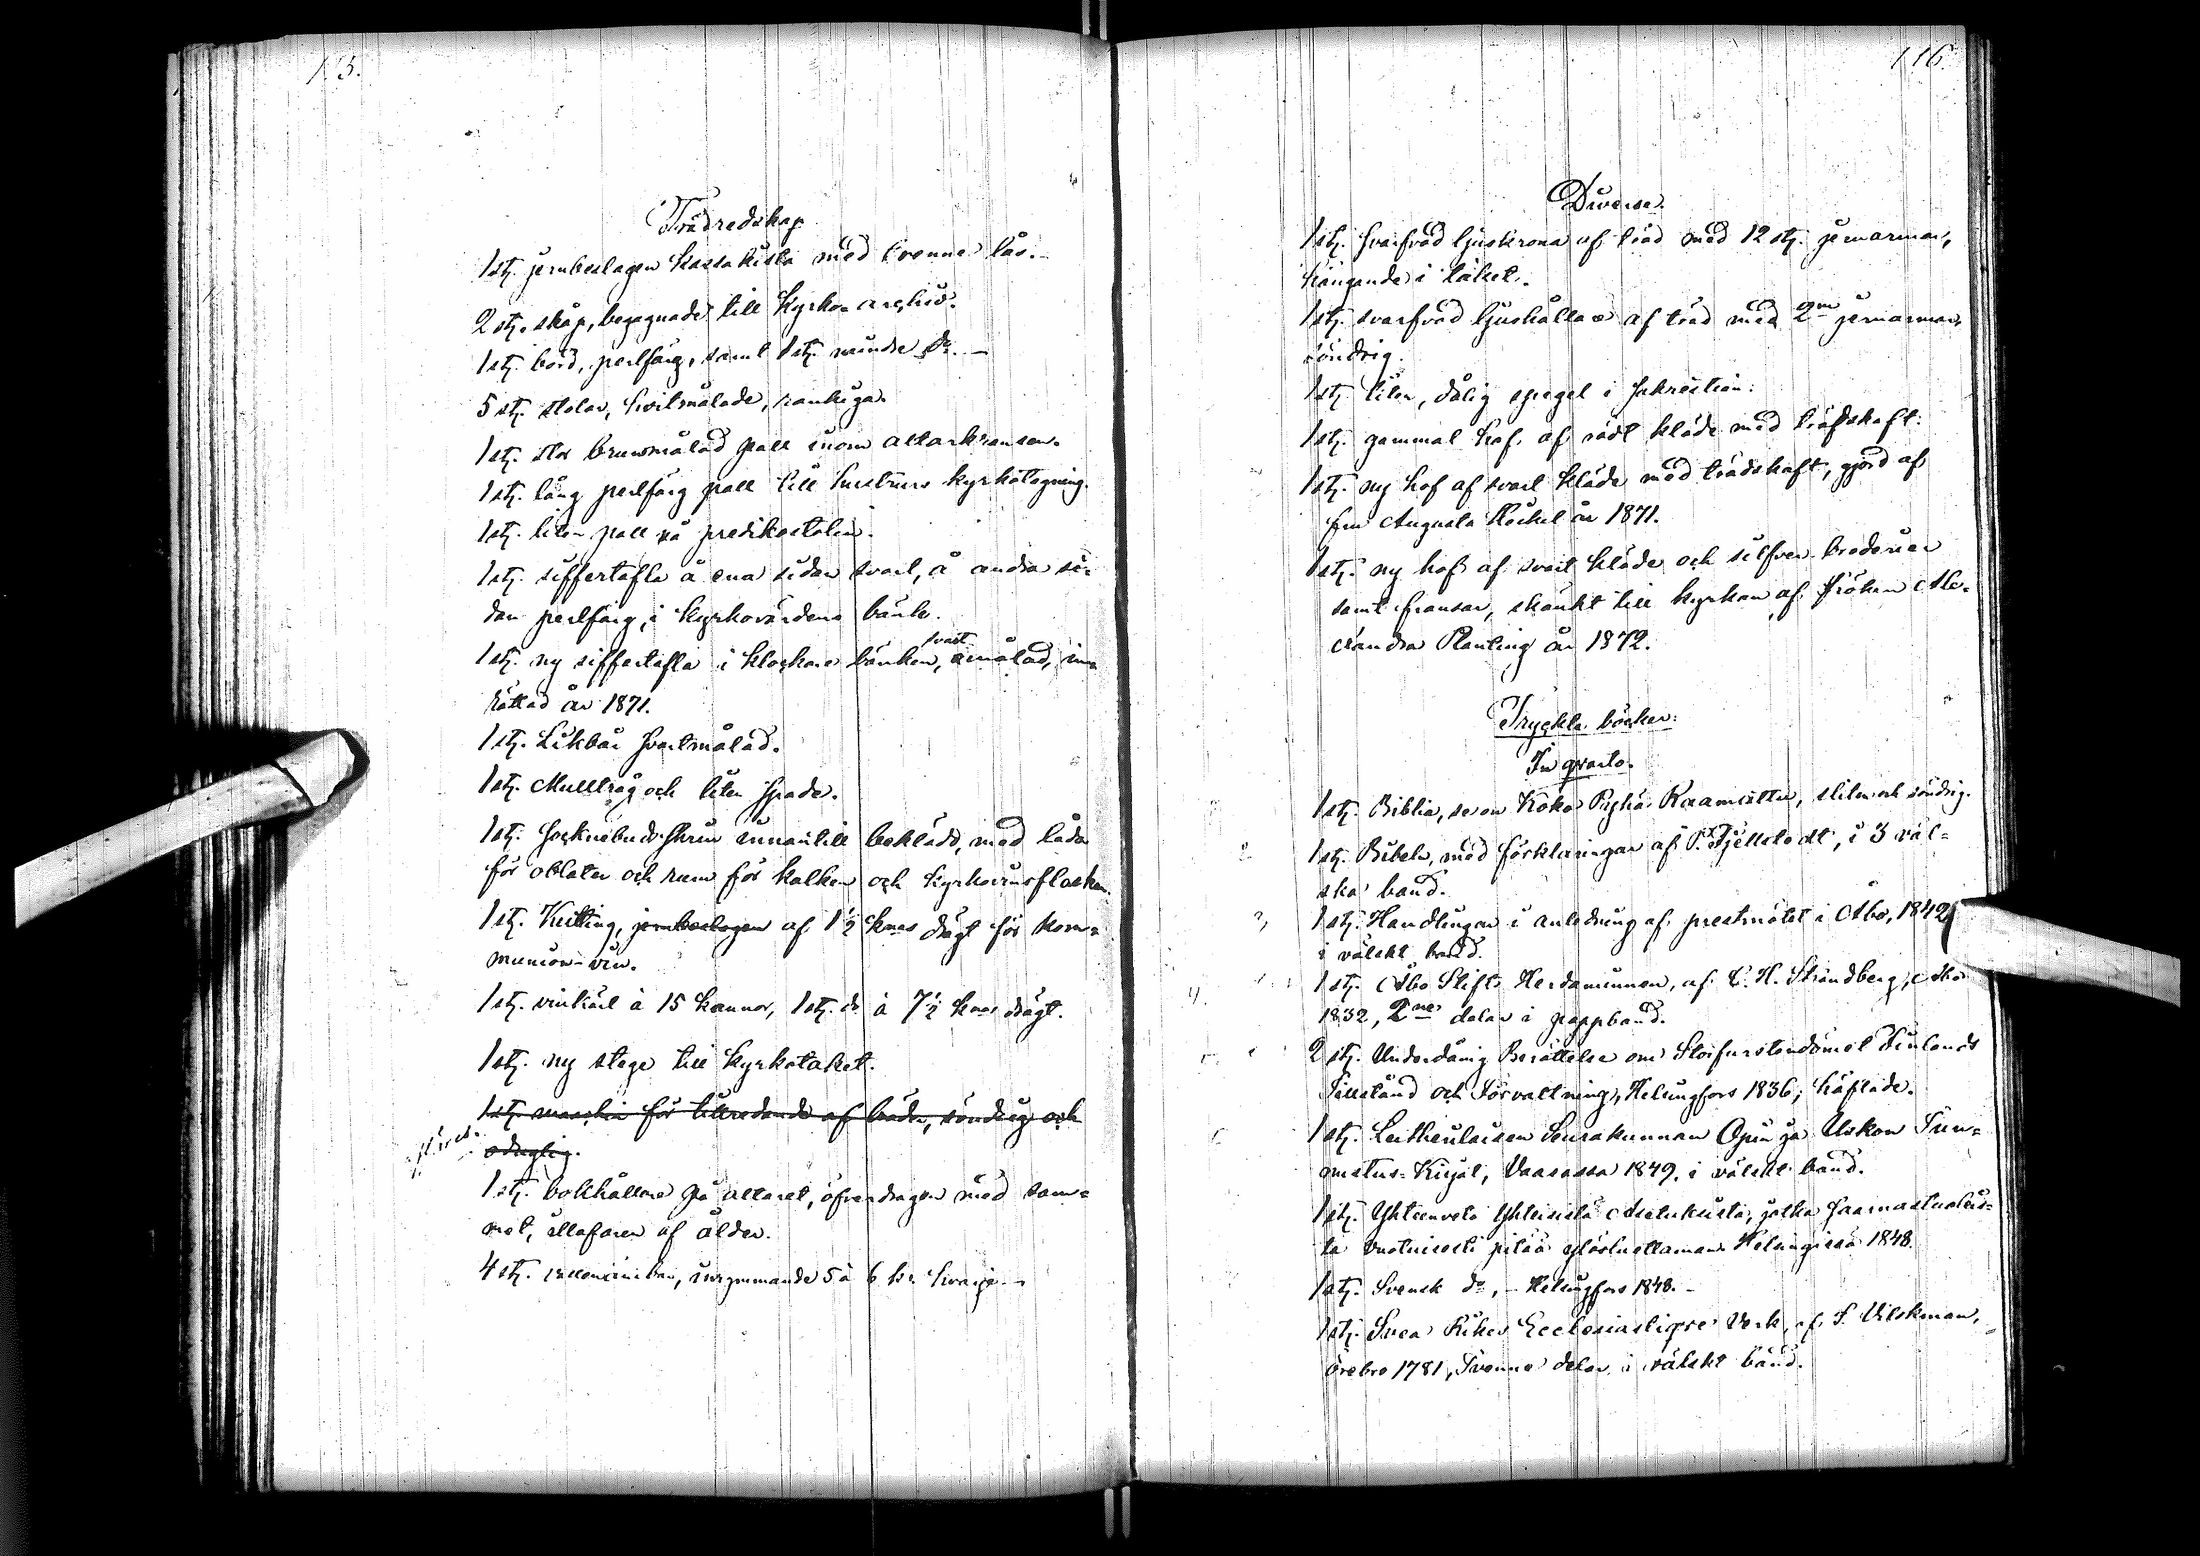 115.
Trädredskap
1 st. jernbeslagen kassakista med tvenne lås.
2 st. skåp, begagnade till Kyrko-archiv.
1 st. bord, perlfärg, samt 1 st. mindre do. —
5 st. stolar, hvitmålade, rankiga.
1 st. stor brunmålad pall inom altarkransen.
1 st. lång perlfärg pall till hustrurs kyrkotagning.
1 st. liten pall på predikostolen.
1 st. siffertafla å ena sidan svart, å andra si-
dan perlfärg, i Kyrkovärdens bänk.
1 st. ny siffertafla i klockare bänken, svart målad, in-
rättad år 1871.
1 st. Likbår svartmålad.
1 st. Mulltråg och liten spade.
1 st. Sockneбudsskrin innantill beklädd, med låda
för oblater och rum för kalken och kyrkovinsflaskan.
1 st. Kutting, jernbeslagen af 1½ knrs drägt för kom-
munion-vin.
1 st. vinkärl à 15 kannor, 1 st. do à 7½ knrs drägt.
1 st. ny stege till kyrkotaket.
1 st. maschin för tillredande af bröden, söndrig och
oduglig.
1 st. bokhållare på altaret, öfverdragen med sam-
met, illafaren af ålder.
4 st. inrymmande 5 à 6 kr hvarje. —
116.
Diverse.
1 st. svarfvad ljuskrona af träd med 12 st. jernarmar,
hängande i taket.
1 st. svarfvad ljushållare af träd med 2ne jernarmar,
söndrig.
1 st. liten, dålig spegel i sakristian.
1 st. gammal håf af rödt kläde med trädskaft.
1 st. ny håf af svart kläde med trädskaft, gjord af
fru Augusta år 1871.
1 st. ny håf af svart kläde och silfver broderier
samt fransar, skänkt till kyrkan af Fröken Ale-
xandra Planting år 1872.
Tryckta böcker:
In qvarto.
1 st. Biblia, se on Koko Pyhä Raamattu, sliten och söndrig.
1 st. Bibeln, med förklaringar af P. Fjellstedt, i 3 väl-
ska band.
3, 1 st. Handlingar i anledning af prestmötet i Åbo, 1842,
i välskt band.
4. 1 st. Åbo Stifts Herdaminnen, af C. H. Strandberg, Åbo
1832, 2ne delar i pappband.
2 st. Underdånig Berättelse om Storfurstendömet Finlands
Tillstånd och Förvaltning, Helsingfors 1836; häftade.
1 st. Lutherilaisen Seurakunnan Opin ja Uskon Tun-
nustus-Kirjat, Vaasassa 1849, i välskt band.
1 st. Yhteenveto Yhteisistä Asetuksista, jotka Saarnastuoleis-
ta vuotuisesti pitää ylösluettaman. Helsingissä 1848.
1 st. Svensk do, — Helsingfors 1848. —
1 st. Svea Rikes Ecclesiastiqve Verk, af S. Vilskman,
Örebro 1781, Tvenne delar i välskt band.